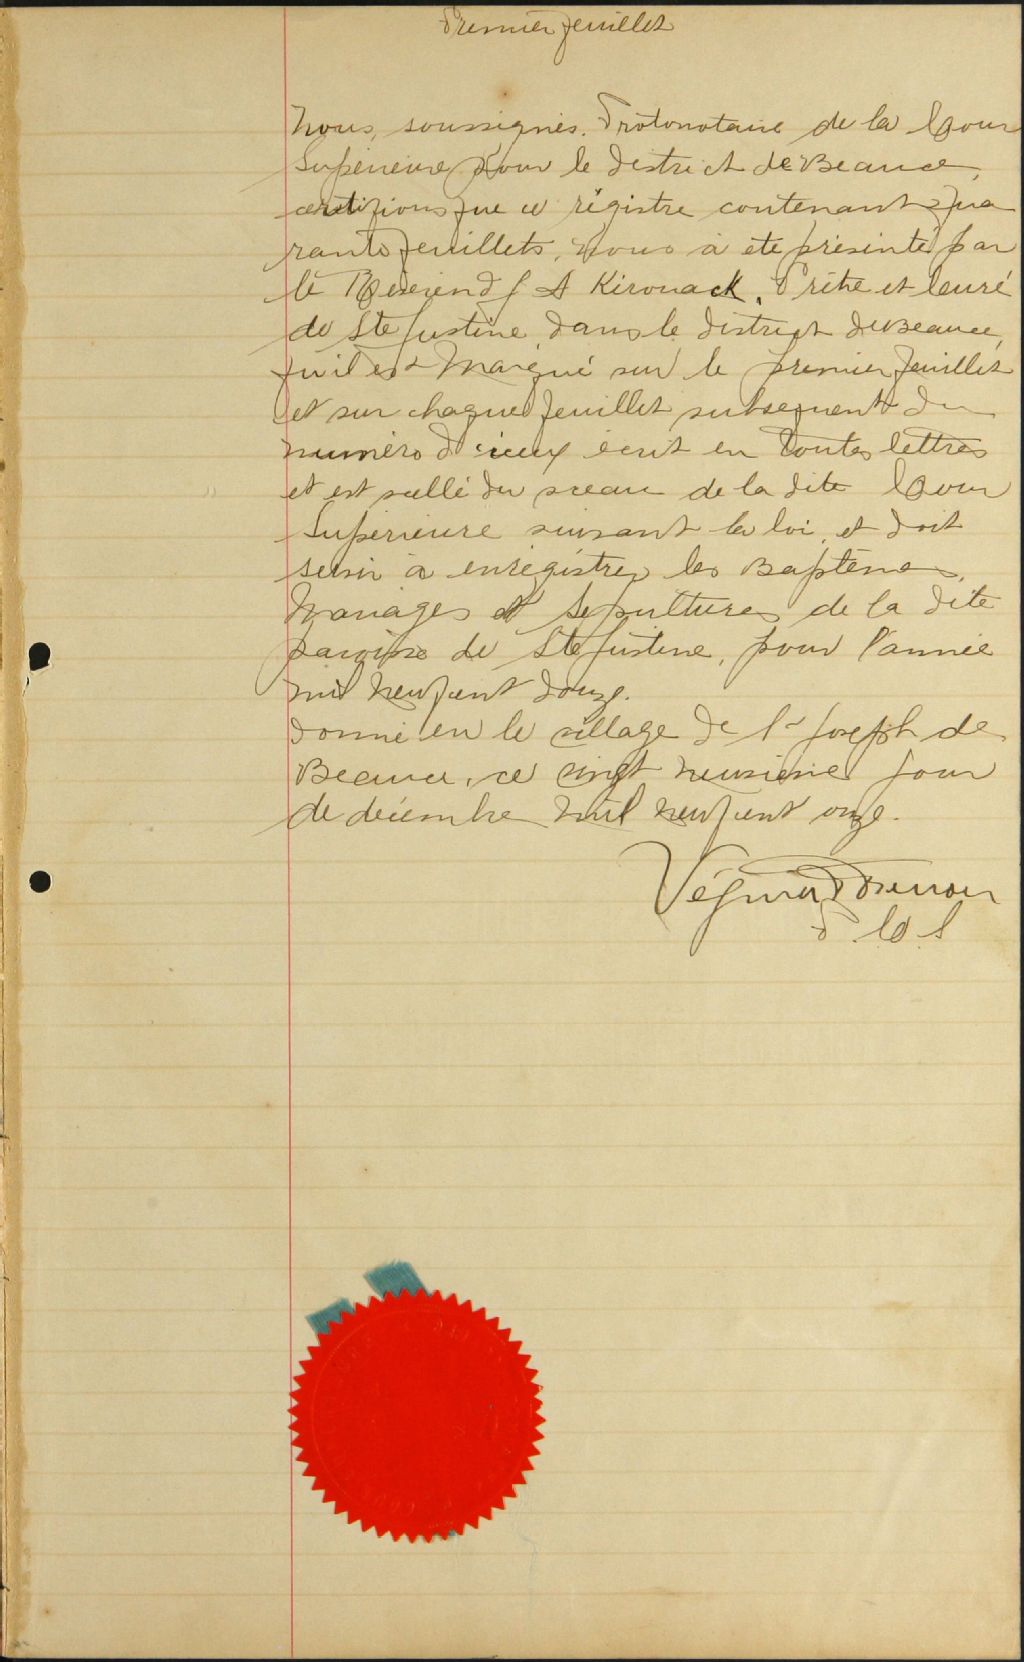 Premier feuillet
Nous, soussignés, Protonotaire de la Cour
Supérieure pour le district de Beauce,
certifions que ce régistre contenant qua
rante feuillets, nous a été présenté par
le Révérend J A Kirouack, Prêtre et Curé
de Ste Justine, dans le district de Beauce,
qu'il est Marqué sur le premier feuillet
et sur chaque feuillet subséquent du
numéro d'iceux écrit en toutes lettres
et est scellé du sceau de la dite Cour
Supérieure suivant la loi, et doit
servir à enrégistrer les Baptêmes,
Mariages et Sépultures de la dite
paroisse de Ste Justine, pour l'année
mil neuf cent douze.
donné en le village de St Joseph de
Beauce, ce vingt neuvième jour
de décembre mil neuf cent onze.
P. C. S